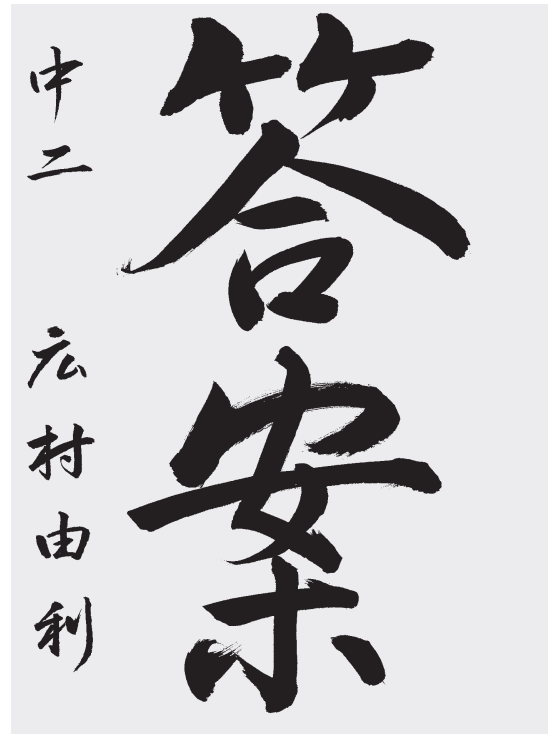 答案
中二 広村由利